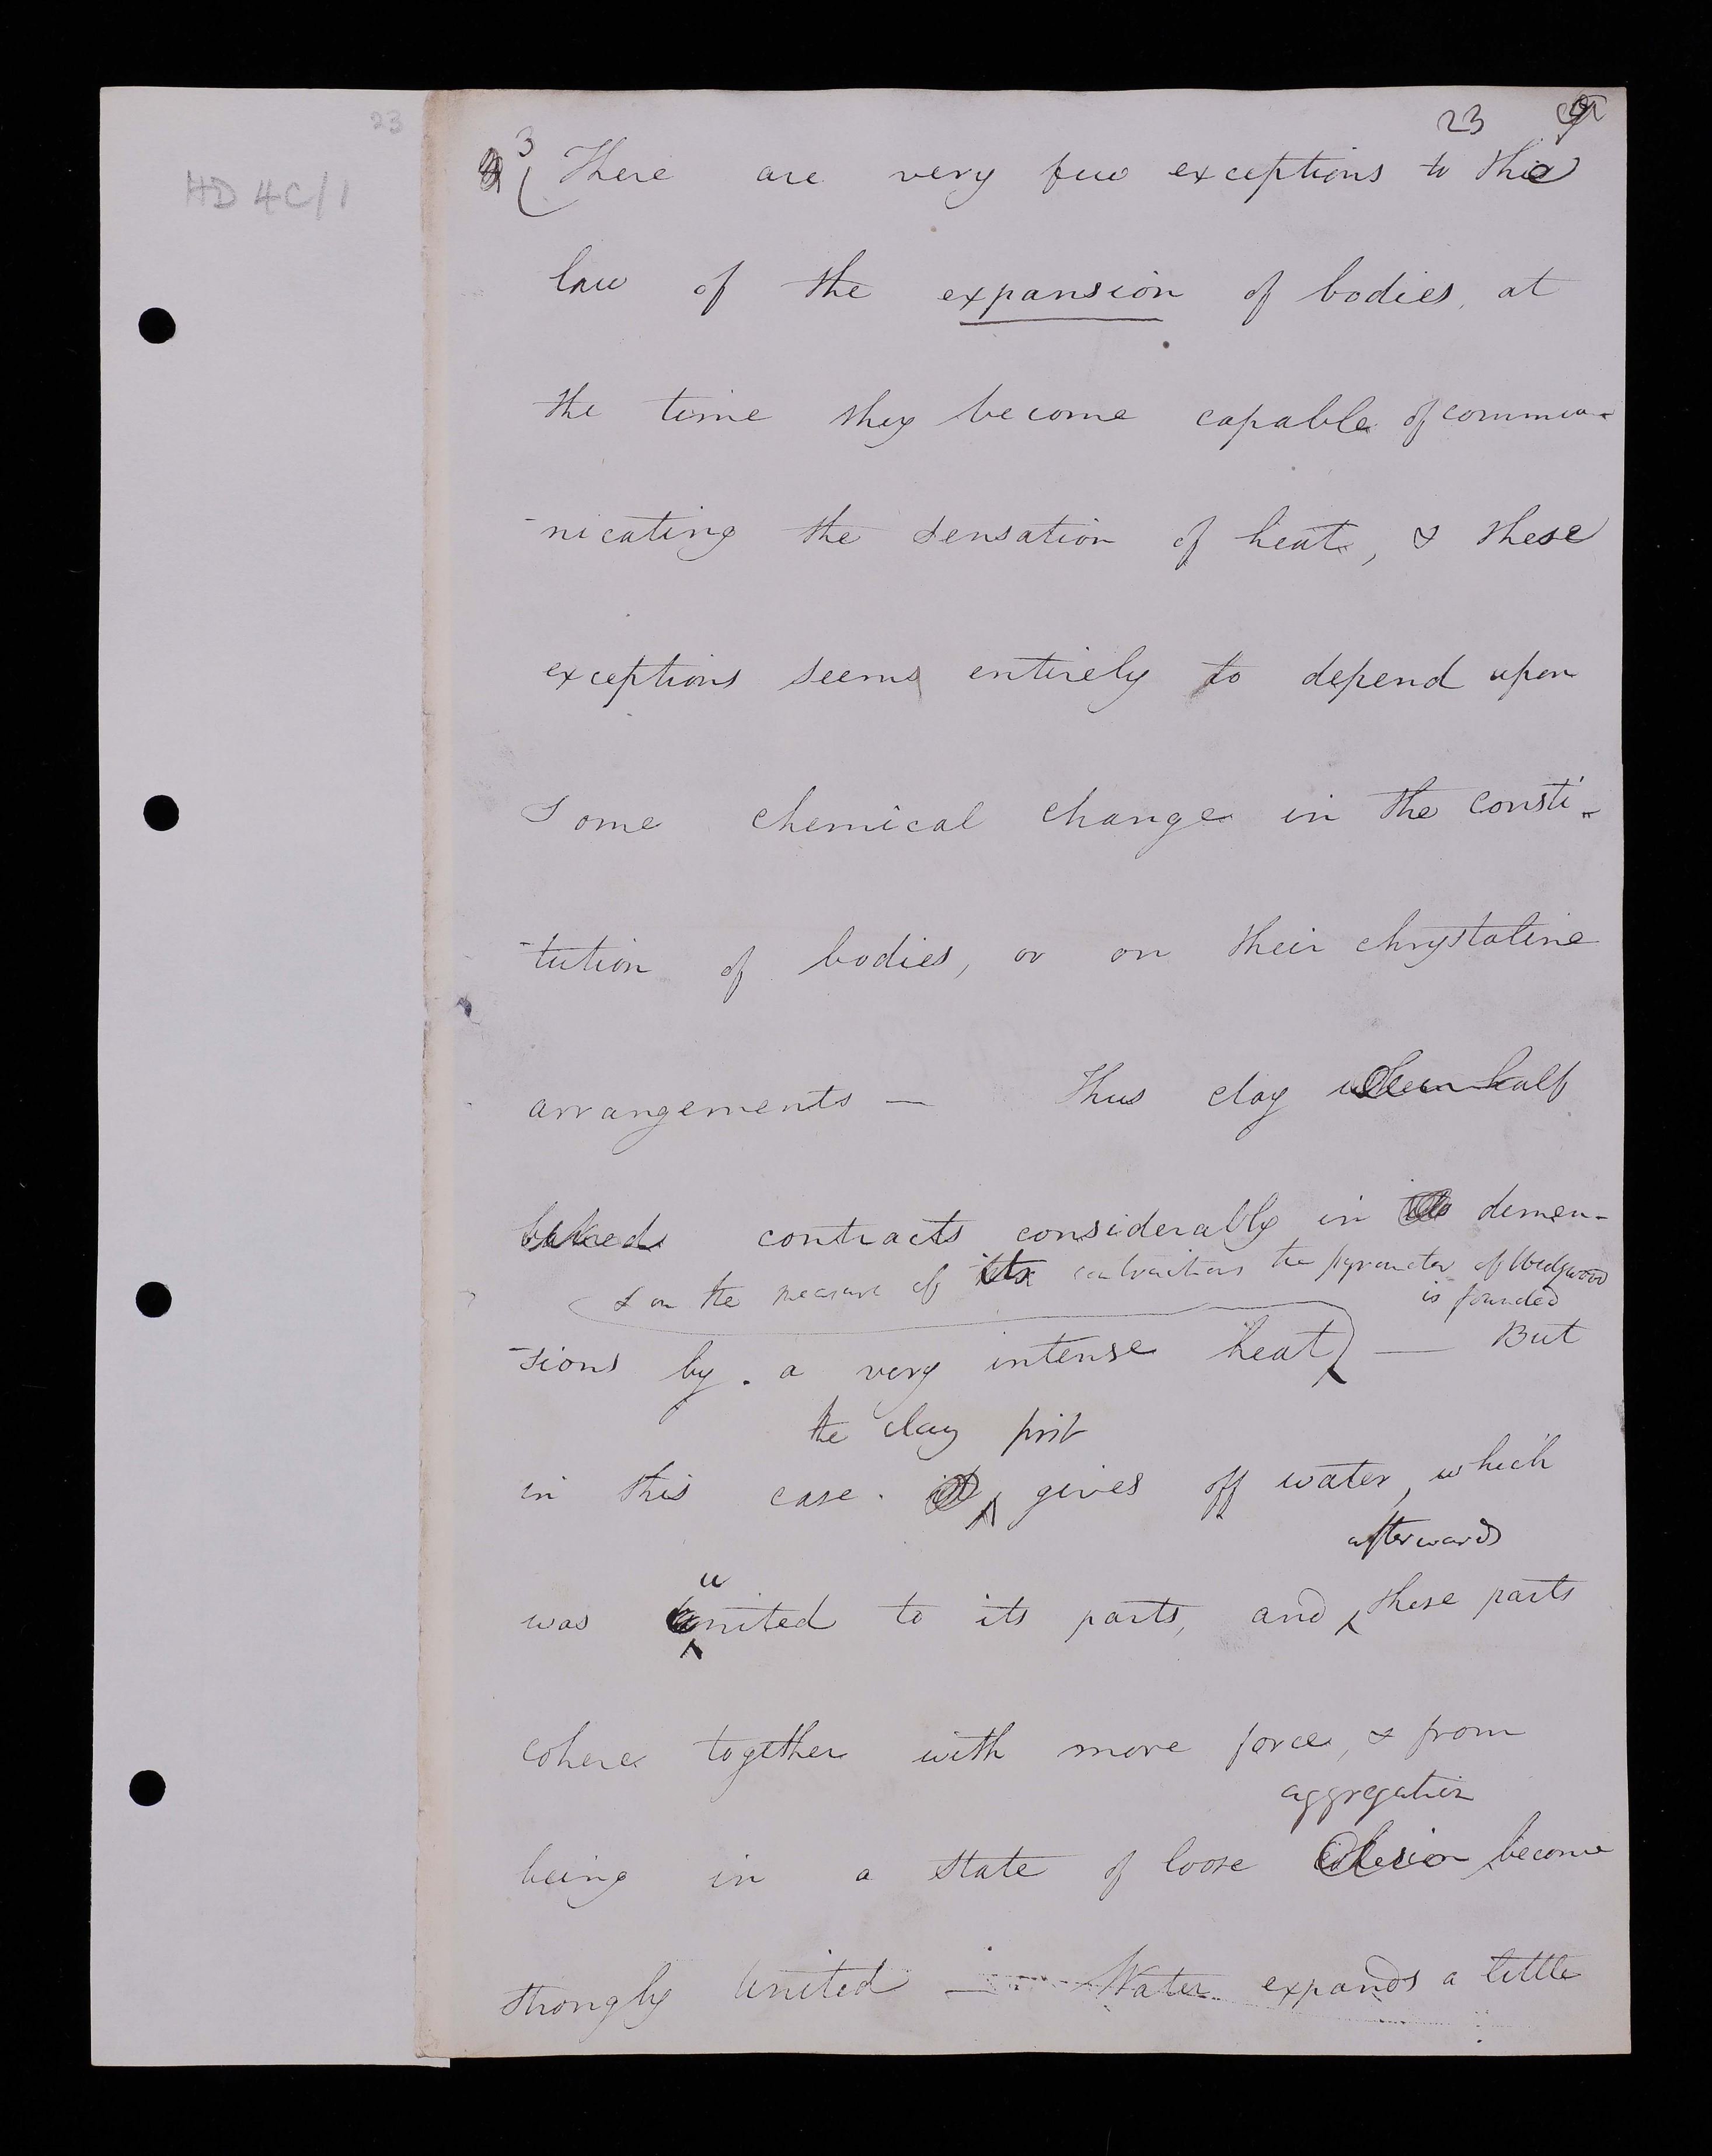 23
HD 4C/1
23
3 There are very few exceptions to this
law of the expansion of bodies, at
the time they become capable of commu-
-nicating the sensation of heat, & these
exceptions seems entirely to depend upon
some chemical change in the consti-
-tution of bodies, or on their chrystaline
arrangements — Thus clay when half
baked contracts considerably in its demen-
& on the measure of its contractions the pyrometer of Wedgwood
is founded
-sions by a very intense heat — But
the clay first
in this case. it gives off water, which
afterwards
u
was united to its parts, and these parts
cohere together with more force, & from
aggregation
being in a state of loose Cohesion become
strongly United — Water expands a little